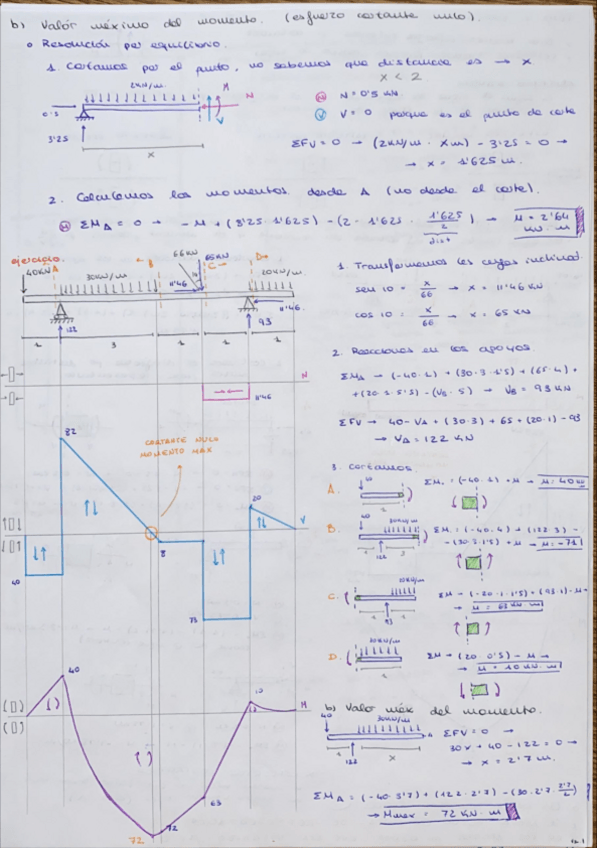 b) Valor máximo del momento. (esfuerzo cortante nulo).
o Resolución por equilibrio.
1. Cortamos por el punto, no sabemos que distancia es → x
x < 2
2KN/m
M
N
V
0'5
3'25
x
N N = 0'5 KN
V V = 0 porque es el punto de corte
ΣFV = 0 → (2KN/m · x m) - 3'25 = 0 →
→ x = 1'625 m.
2. Calculamos los momentos desde A (no desde el corte).
M ΣM_A = 0 → - M + (3'25 · 1'625) - (2 · 1'625 · 1'625/2) → M = 2'64 KN·m
dist
ejercicio.
40KN
A
30KN/m
B
66KN
65KN
C
D
20KN/m
11'46
11'46
122
93
1
3
1
1
1
N
11'46
82
CORTANTE NULO
MOMENTO MAX
20
V
8
40
73
40
10
M
63
72
72
1. Transformamos las cargas inclinad.
sen 10 = x/66 → x = 11'46 KN
cos 10 = x/66 → x = 65 KN
2. Reacciones en los apoyos
ΣM_A → (-40·1) + (30·3·1'5) + (65·4) +
+ (20·1·5'5) - (V_B · 5) → V_B = 93 KN
ΣFV → 40 - V_A + (30·3) + 65 + (20·1) - 93
→ V_A = 122 KN
3. Cortamos.
A.
40
1
ΣM : (-40·1) + M → M = 40 KN
B.
40
30KN/m
122
1
3
ΣM : (-40·4) + (122·3) -
- (30·3·1'5) + M → M = -71
C.
93
1
1
ΣM → (-20·1·1'5) + (93·1) - M →
→ M = 63 KN·m
D.
1
ΣM → (20·0'5) - M →
→ M = 10 KN·m
b) Valor máx del momento.
40
30KN/m
122
1
x
ΣFV = 0 →
30x + 40 - 122 = 0 →
→ x = 2'7 m.
ΣM_A = (-40·3'7) + (122·2'7) - (30·2'7·2'7/2)
→ Mmax = 72 KN·m